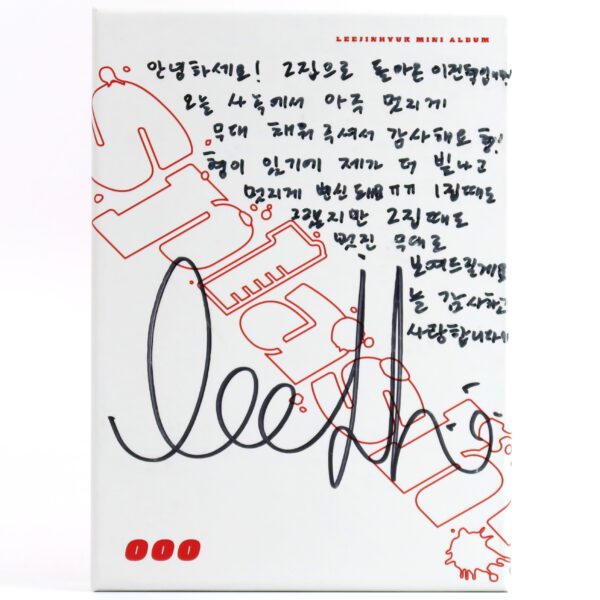 LEEJINHYUK MINI ALBUM
안녕하세요! 2집으로 돌아온 이진혁입니다!
오늘 사녹에서 아주 멋지게
무대 채워 주셔서 감사해요 형!
형이 있기에 제가 더 빛나고
멋지게 변신 돼요ㅠㅠ 1집때도
그랬지만 2집때도
멋진 무대로
보여드릴게요
늘 감사하고
사랑합니다
000